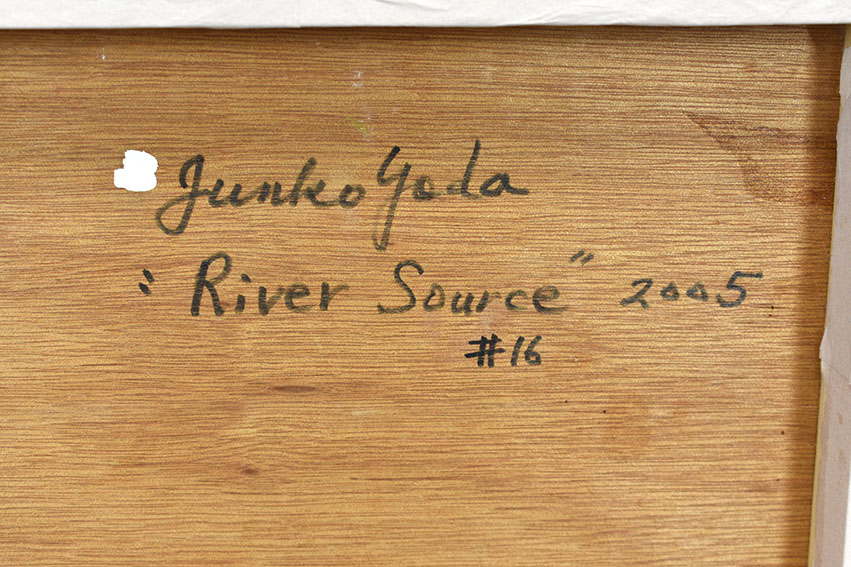 Junko Yoda
"River Source" 2005
#16